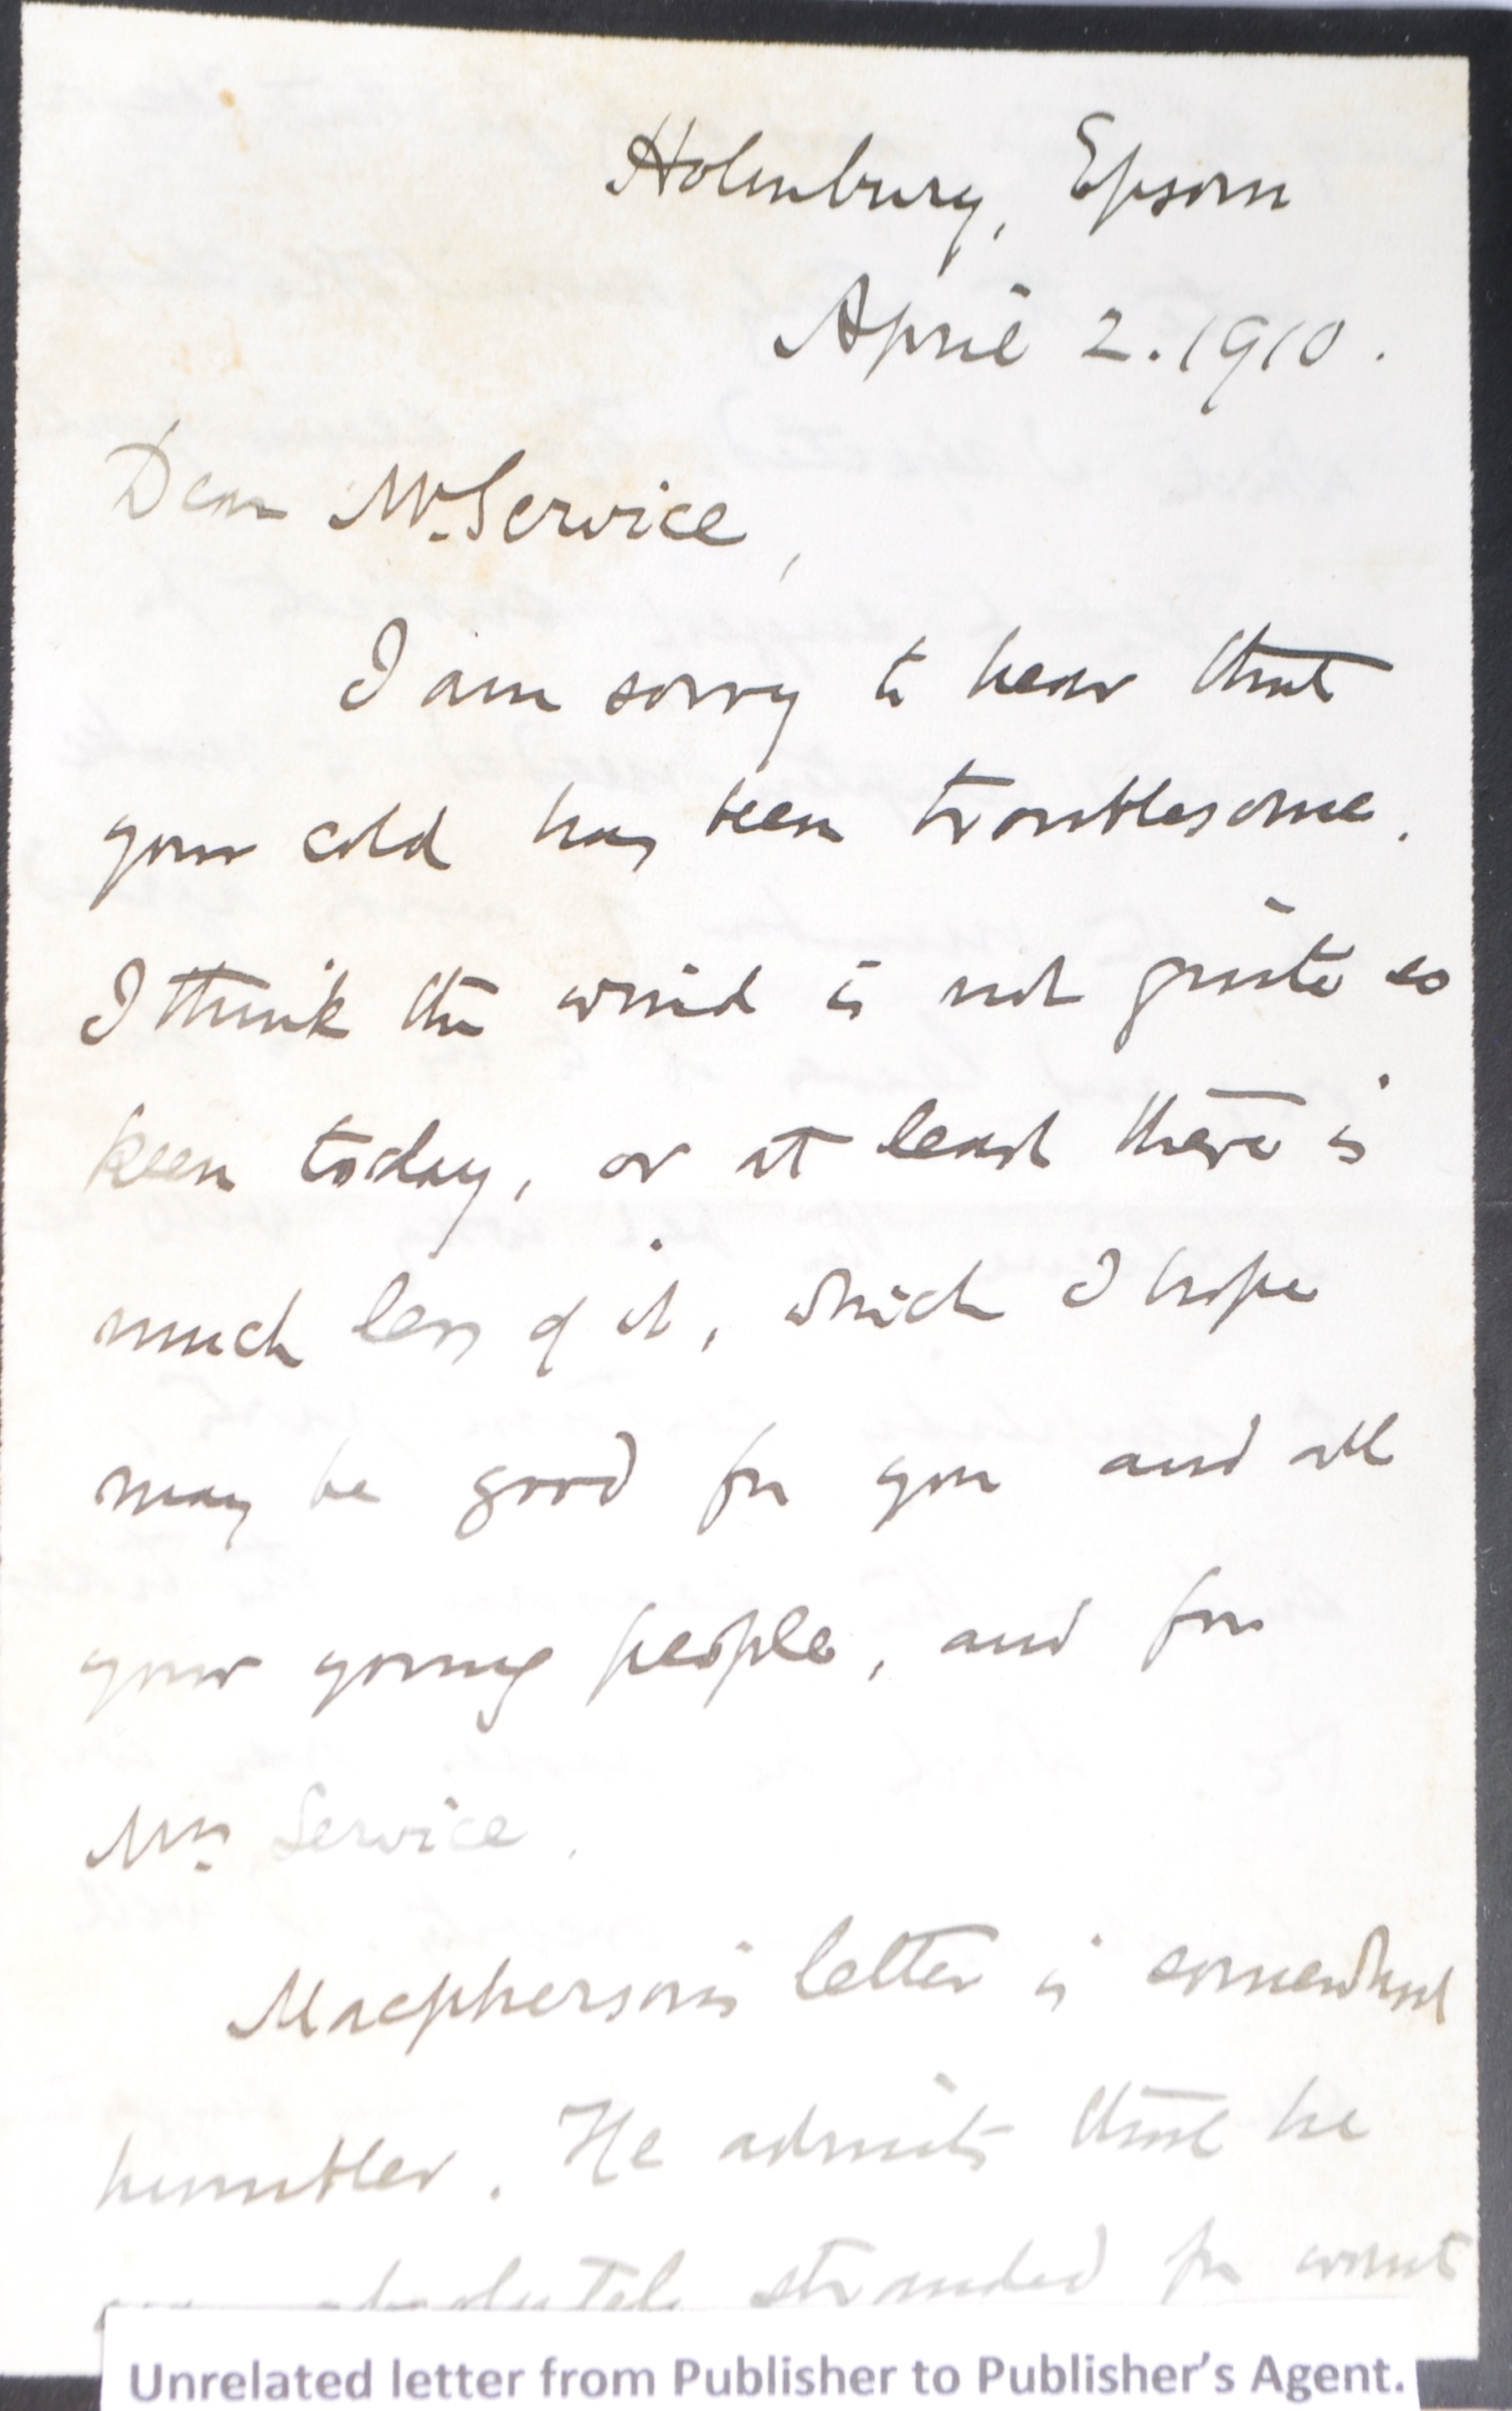 Holmbury, Epsom
April 2. 1910.
Dear Mr. Service,
I am sorry to hear that
your cold has been troublesome.
I think the wind is not quite so
keen today, or at least there is
much less of it, which I hope
may be good for you and all
your young people, and for
Mrs. Service.
Macpherson's letter is somewhat
humbler. He admits that he
absolutely stranded for want
Unrelated letter from Publisher to Publisher's Agent.